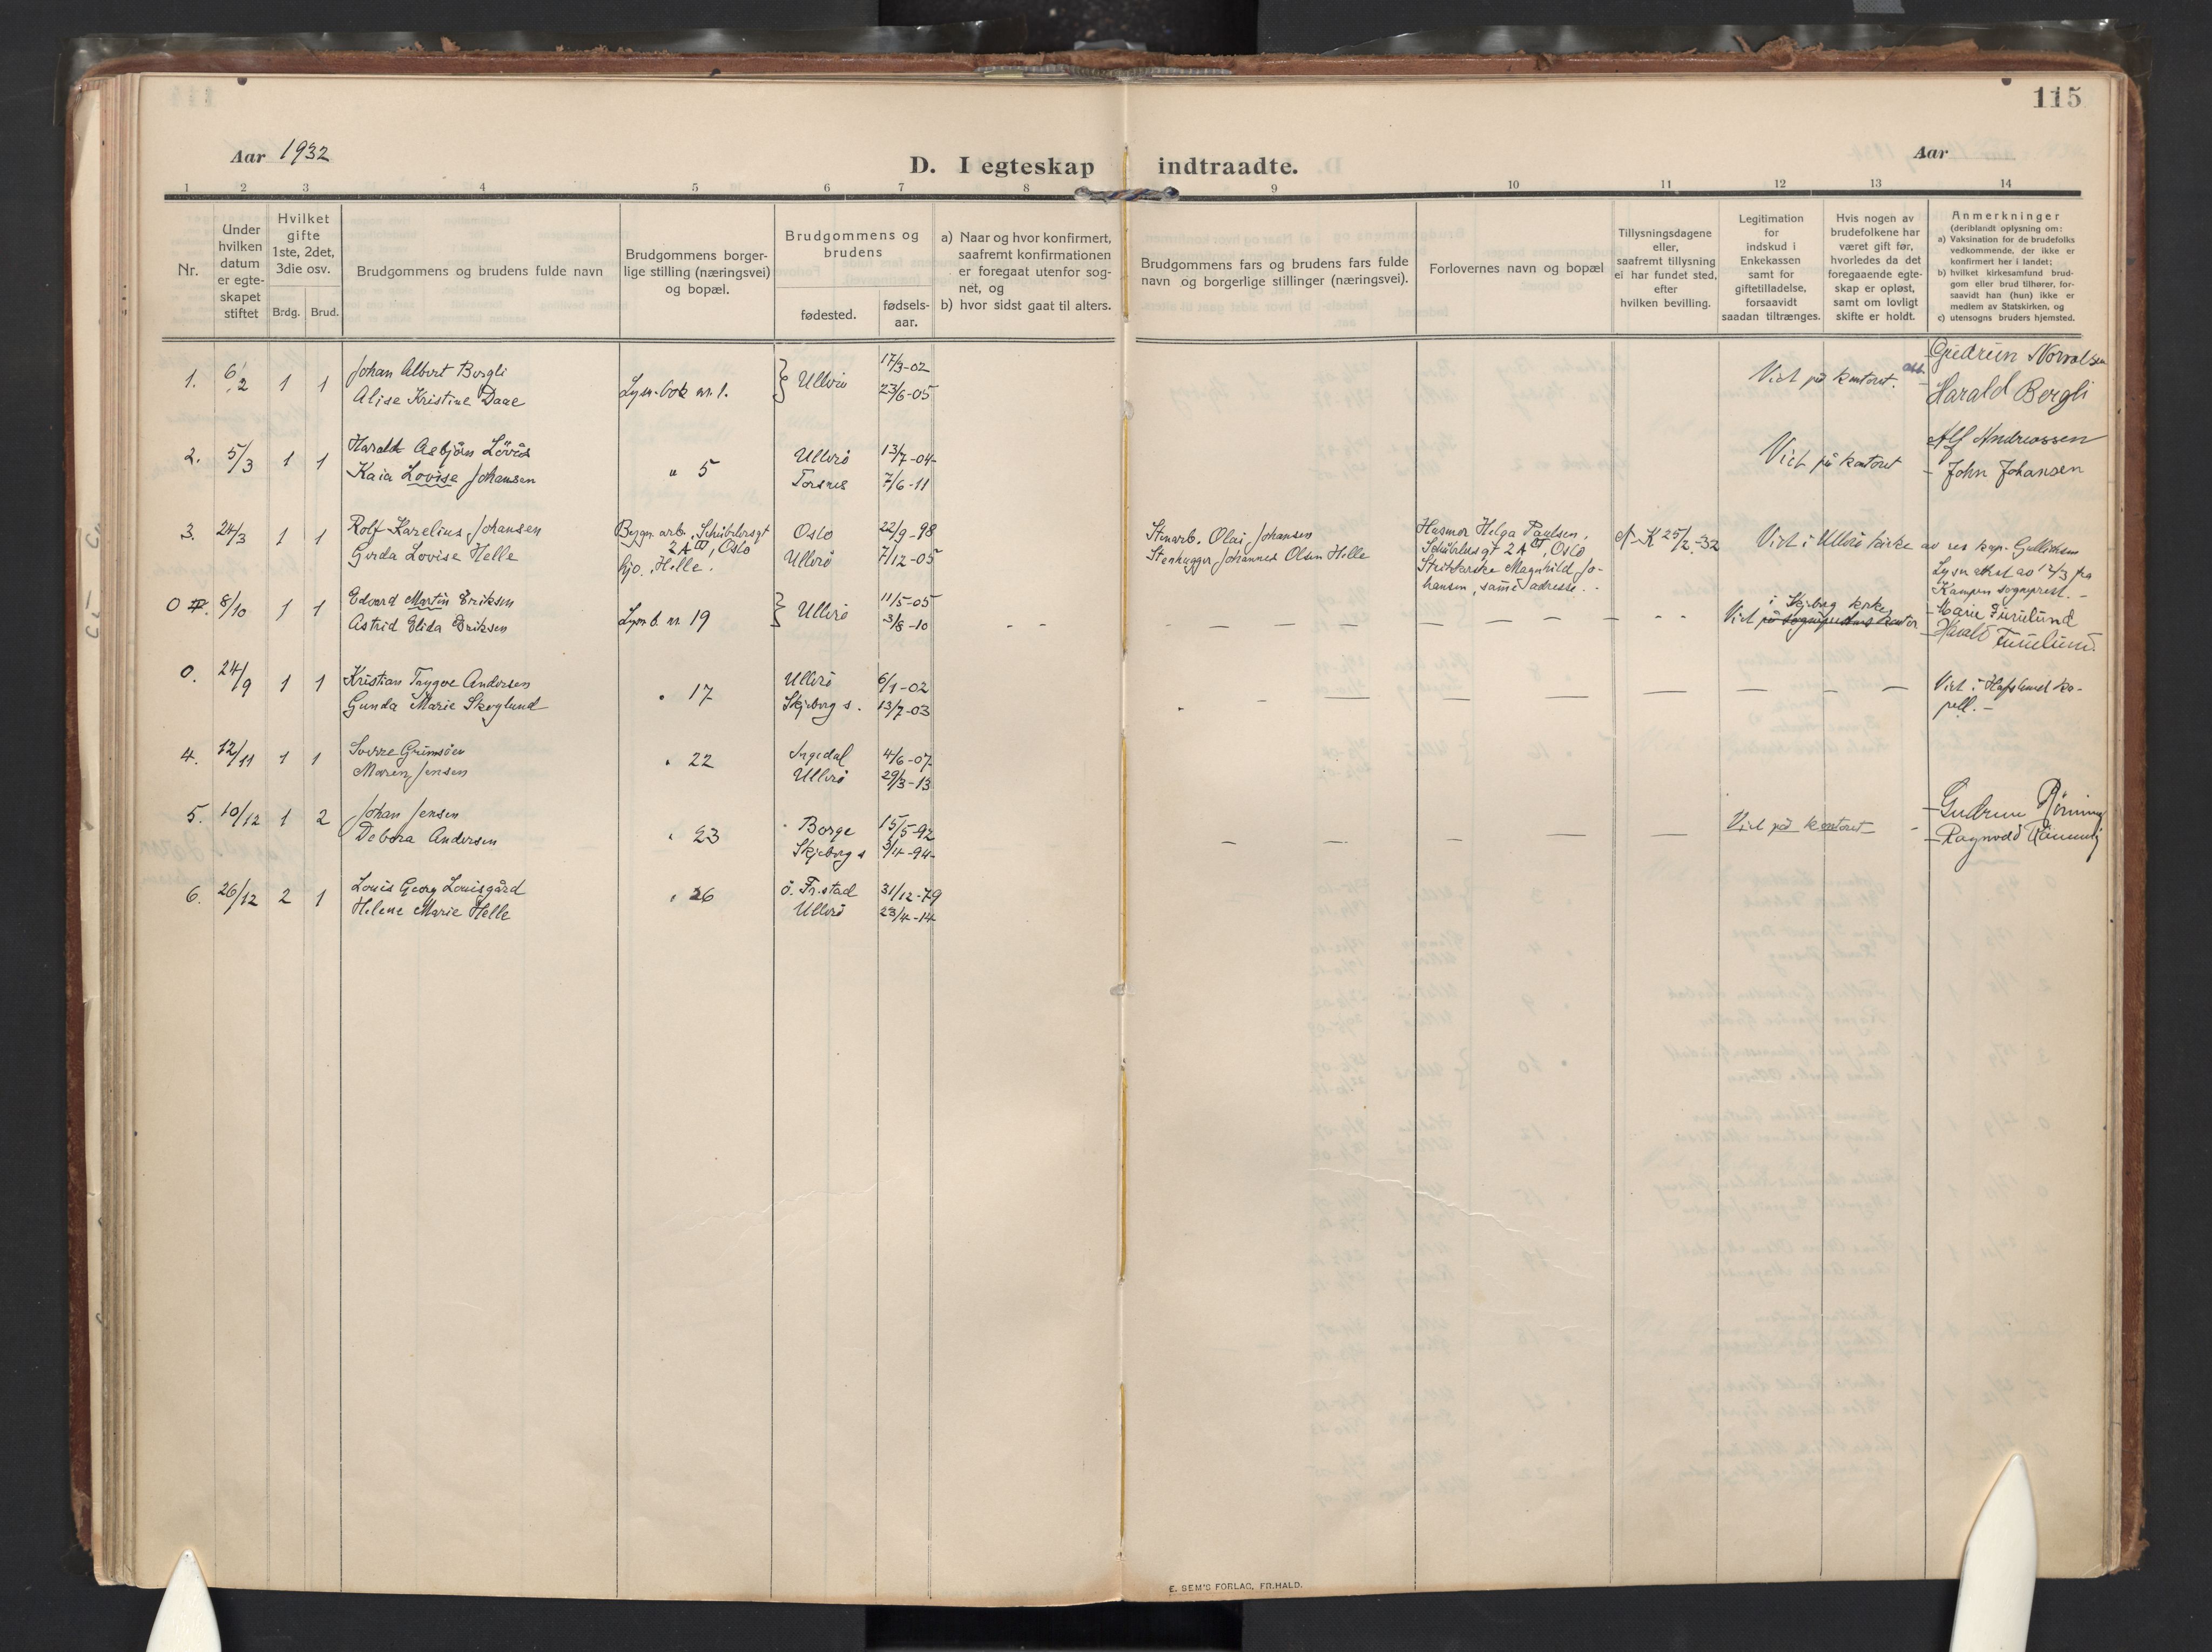 115
Aar 1932
D. I egteskap indtraadte.
Aar
1 2 3 4 5 6 7 8 9 10 11 12 13 14
Nr.
Under
hvilken
datum
er egte-
skapet
stiftet
Hvilket
gifte
1ste, 2det,
3die osv.
Brdg. Brud.
Brudgommens og brudens fulde navn
Brudgommens borger-
lige stilling (næringsvei)
og bopæl.
Brudgommens og
brudens
fødested.
fødsels-
aar.
a) Naar og hvor konfirmert,
saafremt konfirmationen
er foregaat utenfor sog-
net, og
b) hvor sidst gaat til alters.
Brudgommens fars og brudens fars fulde
navn og borgerlige stillinger (næringsvei).
Forlovernes navn og bopæl
Tillysningsdagene
eller,
saafremt tillysning
ei har fundet sted,
efter
hvilken bevilling.
Legitimation
for
indskud i
Enkekassen
samt for
giftetilladelse,
forsaavidt
saadan tiltrænges.
Hvis nogen av
brudefolkene har
været gift før,
hvorledes da det
foregaaende egte-
skap er opløst,
samt om lovligt
skifte er holdt.
Anmerkninger
(deriblandt oplysning om:
a) Vaksination for de brudefolks
vedkommende, der ikke er
konfirmert her i landet;
b) hvilket kirkesamfund brud-
gom eller brud tilhører, for-
saavidt han (hun) ikke er
medlem av Statskirken, og
c) utensogns bruders hjemsted.
1. 6/2 1 1 Johan Albert Bergli
Alise Kristine Daae
Lysn. bok nr. 1.
Ullerö
17/3-02
23/6-05
Viet på kontoret.
Gudrun
Harald Bergli
2. 5/3 1 1 Harald Asbjörn
Kaia Lovise Johansen
" 5
Ullerö 13/7-04
Torsnes 7/6-11
Viet på kontoret
Alf Andreassen
- John Johansen
3. 24/3 1 1 Rolf Karelius Johansen
Gerda Lovise Helle
Bygn. arb., Schüblersgt
2 A III, Oslo
Kjo. Helle.
Oslo 22/9-98
Ullerö 7/12-05
Stenarb. Olai Johansen
Stenhugger Johannes Olsen Helle
Husmor Helga Paulsen,
Schüblersgt 2 A III, Oslo
Magnhild Jo-
hansen, samme adresse.
K 25/2-32
Viet i Ullerö kirke av res. kap. Gulliksen
Lysn. attest av 12/3 fra
Kampen sogneprest. -
0 8/10 1 1 Edvard Martin Eriksen
Astrid Elida Eriksen
Lysn. b. nr. 19
Ullerö
11/5-05
3/8-10
i Skjeberg kirke
Viet på sogneprestens kontor
- Marie Furulund
- Harald Furulund.
0. 24/9 1 1 Kristian Trygve Andersen
Gunda Marie Skoglund
" 17
Ullerö 6/1-02
Skjeberg s. 13/7-03
Viet i Hafslund ka-
pell. -
4. 12/11 1 1 Sverre Grimsöen
Maren Jensen
" 22
Ingedal 4/6-07
Ullerö 29/3-13
5. 10/12 1 2 Johan Jensen
Debora Andersen
" 23
Borge 15/5-92
Skjeberg s 3/4-94
Viet på kontoret
- Gudrun Rönning
- Ragnvald Rönning
6. 26/12 2 1 Louis Georg Louisgård
Helene Marie Helle
" 26
ö. Fr.stad 31/12-79
Ullerö 23/4-14
E. SEM'S FORLAG, FR.HALD.